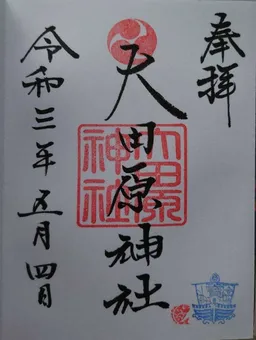 奉拝
大田原神社
令和三年五月四日
大田原
神社